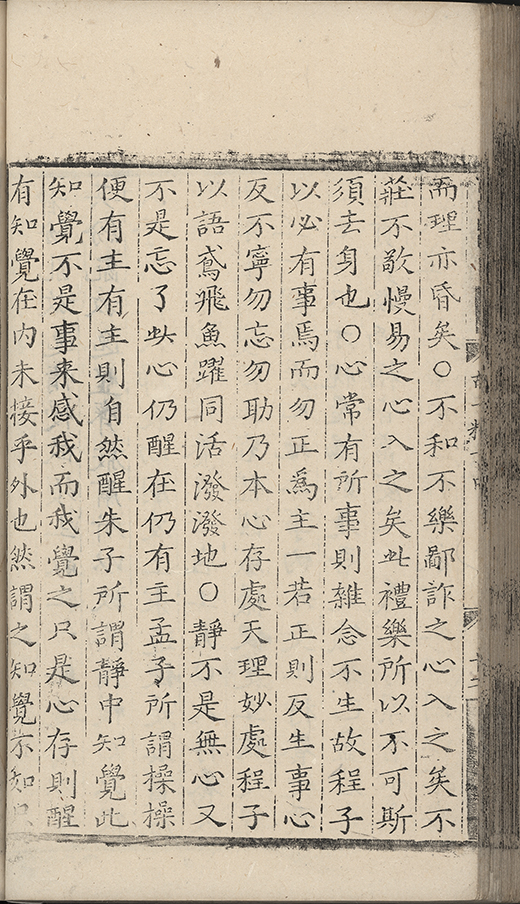 而理亦昏矣○不和不樂鄙詐之心入之矣不
莊不敬慢易之心入之矣此禮樂所以不可斯
須去身也○心常有所事則雜念不生故程子
以必有事焉而勿正爲主一若正則反生事心
反不寧勿忘勿助乃本心存處天理妙處程子
以語鳶飛魚躍同活潑潑地○靜不是無心又
不是忘了此心仍醒在仍有主孟子所謂操操
便有主有主則自然醒朱子所謂靜中知覺此
知覺不是事來感我而我覺之只是心存則醒
有知覺在內未接乎外也然謂之知覺不如只